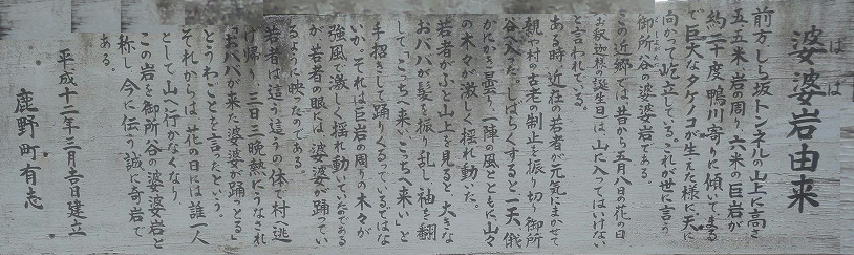 婆婆岩由来
ばば
前方しら坂トンネルの山上に高さ
五五米岩の周り六米の巨岩が
約二十度鴨川寄りに傾いてまる
で巨大なタケノコが生えた様に天に
向かって屹立している。これが世に言う
御所谷の婆婆岩である。
この近郷では昔から五月八日の花の日
お釈迦様の誕生日は、山に入ってはいけない
と言われている。
ある時近在の若者が元気にまかせて
親や村の古老の制止を振り切り御所
谷へ入った。しばらくすると一天俄
かにかき曇り一陣の風とともに山々
の木々が激しく揺れ動いた。
若者がふと山上を見ると大きな
おババが髪を振り乱し袖を翻
して、こっちへ来いこっちへ来い」と
手招きして踊りくるっているではな
いか。それは巨岩の周りの木々が
強風で激しく揺れ動いていたのである
が若者の眼には、婆婆が踊ってい
るように映ったのである。
若者は這う這うの体で村へ逃
げ帰り三日三晩熱にうなされ
「おババが来た婆婆が踊っとる」
とうわごとを言ったという。
それからは、花の日には誰一人
として山へ行かなくなり
この岩を御所谷の婆婆岩と
称し今に伝う誠に奇岩で
ある。
平成十二年三月吉日建立
鹿野町有志